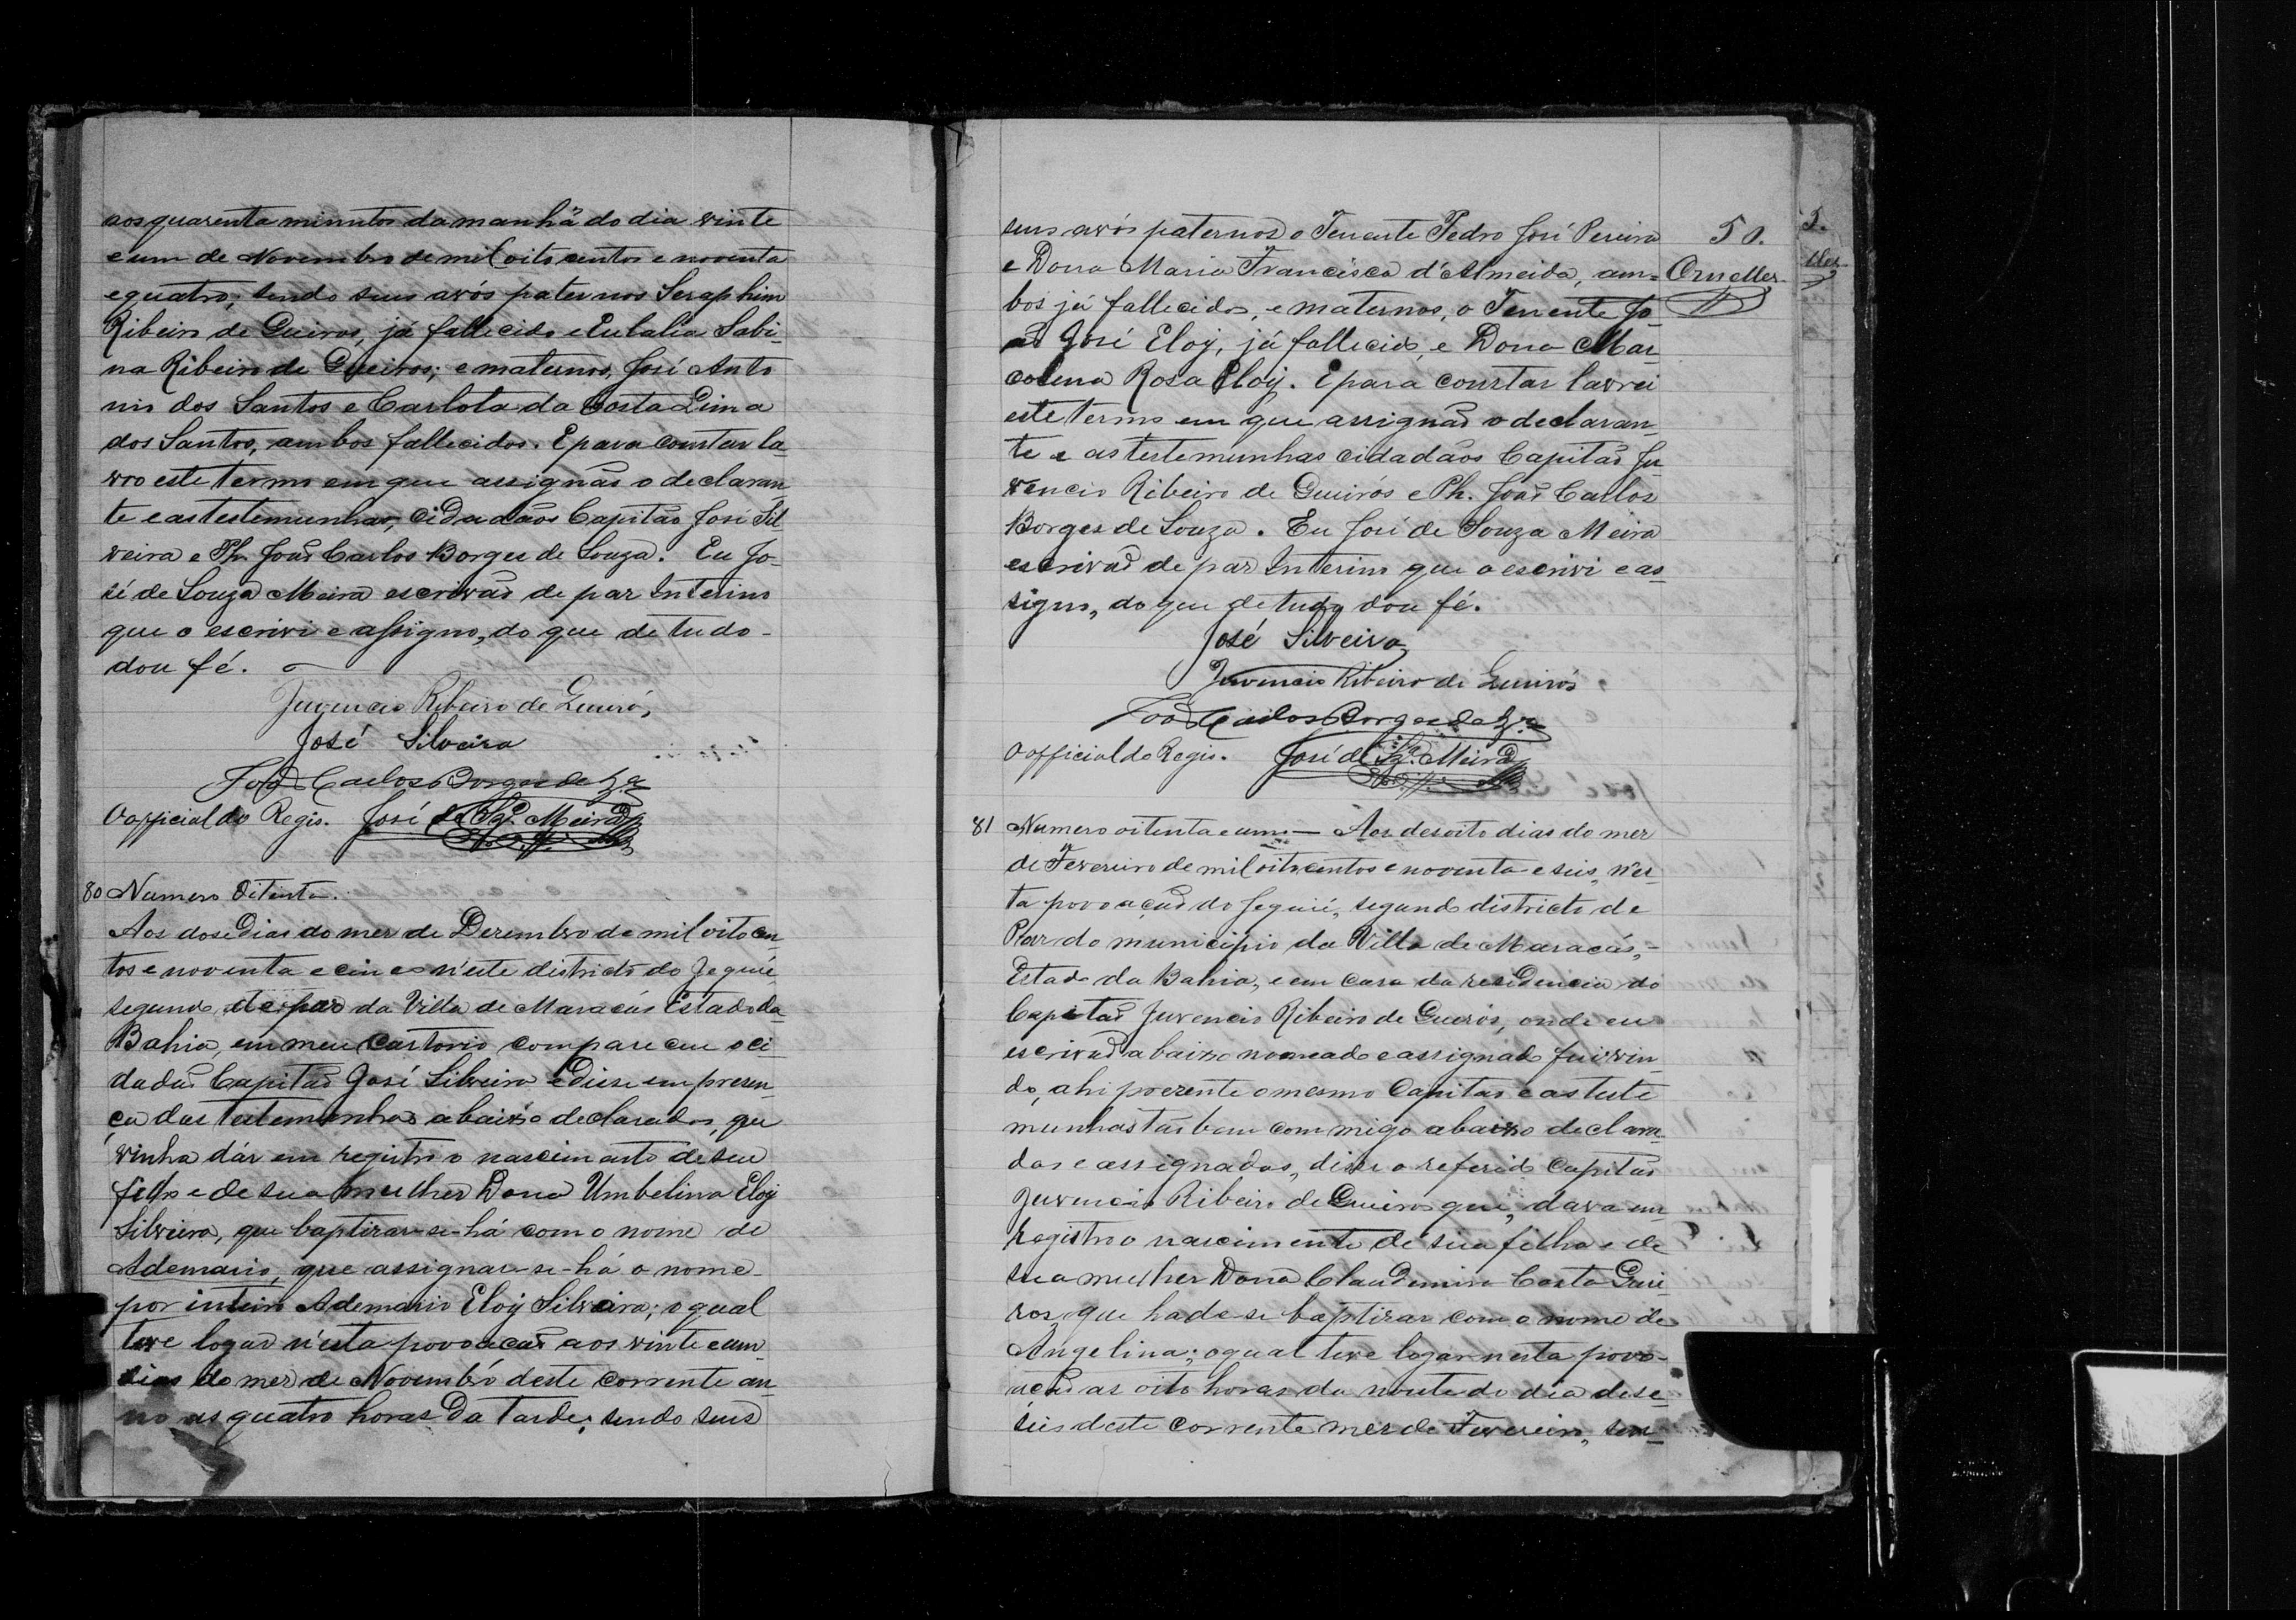 aos quarenta minutos da manhã do dia vinte
e um de Novembro de mil oito centos e noventa
e quatro; sendo seus avós paternos Seraphim
Ribeiro de Queiros, já fallecido e Eulalia Sabi-
na Ribeiro de Queiros; e maternos, José Anto
nio dos Santos e Carlota da Costa Lima
dos Santos, ambos fallecidos. E para constar la-
vro este termo em que assignão o declaran
te e as testemunhas, Cidadãos Capitão José Sil
veira e Ph. João Carlos Borges de Souza. Eu Jo-
sé de Souza Meira escrivão de paz Interino
que o escrivi e assigno, do que de tudo
dou fé.
Juvencio Ribeiro de Queirós
José Silveira
João Carlos Borges de Sza
O official do Regis. José de Sza. Meira
80 Numero Oitenta.
Aos dose Dias do mez de Dezembro de mil oito cen
tos e noventa e cinco n'este districto do Jequié
segundo de paz da Villa de Maracás Estado da
Bahia, em meu Cartorio compareceu o ci
dadão Capitão José Silveira e disse em presen-
ça das testemunhas abaixo declaradas, que
vinha dár em registro o nascimento de seu
filho e de sua mulher Dona Umbelina Eloy
Silveira, que baptizar-se-há com o nome de
Ademario, que assignar-se-há o nome
por inteiro Ademario Eloy Silveira; o qual
teve logar n'esta povoação aos vinte e um
dias do mez de Novembro deste corrente an-
no as quatro horas da tarde; sendo seus
seus avós paternos o Tenente Pedro José Pereira
e Dona Maria Francisca d'Almeida, am-
bos já fallecidos, e maternos, o Tenente Jo
ão José Eloy, já fallecido, e Dona Mar
colina Rosa Eloy. E para constar lavrei
este termo em que assignão o declaran-
te e as testemunhas cidadãos Capitão Ju
vencio Ribeiro de Queirós e Ph. João Carlos
Borges de Souza. Eu José de Souza Meira
escrivão de paz Interino que o escrivi e as-
signo, do que de tudo dou fé.
José Silveira
Juvencio Ribeiro de Queirós
João Carlos Borges de Sza
O official do Regis. José de Sza. Meira
50.
Ornellas
81 Numero oitenta e um — Aos desoito dias do mez
de Fevereiro de mil oitocentos e noventa e seis, n'es-
ta povoação do Jequié, segundo districto de
Paz do municipio da Villa de Maracás,
Estado da Bahia, e em casa da residencia do
Capitão Juvencio Ribeiro de Queiros, onde eu
escrivão abaixo nomeado e assignado fui vin-
do, ahi prezente o mesmo Capitão e as teste
munhas tão bem com migo abaixo declara-
das e assignadas, disse o referido Capitão
Juvencio Ribeiro de Queiros que, dava em
registro o nascimento de sua filha e de
sua mulher Dona Claudemira Costa Quei
ros, que ha de se baptizar com o nome de
Angelina; o qual teve logar nesta povo-
ação as oito horas da noute do dia dese-
seis deste corrente mez de Fevereiro, sen-